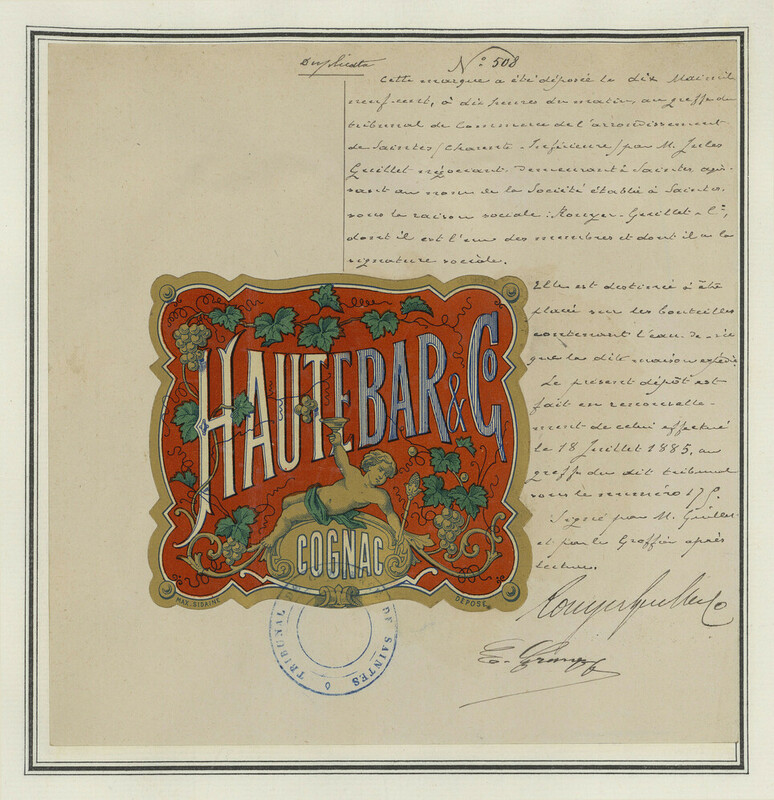 Duplicata
N° 508
Cette marque a été déposée le dix Mai mil
neuf cent, à dix heures du matin, au greffe du
tribunal de Commerce de l'arrondissement
de Saintes (Charente-Inférieure) par M. Jules
Guillet négociant demeurant à Saintes agis-
sant au nom de la Société établie à Saintes
sous la raison sociale: Rouyer-Guillet & Cie,
dont il est l'un des membres et dont il a la
signature sociale.
Elle est destinée à être
placée sur les bouteilles
contenant l'eau-de-vie
que la dite maison expédie.
Le présent dépôt est
fait en renouvelle-
ment de celui effectué
le 18 Juillet 1885, au
greffe du dit tribunal
sous le numéro 175.
Signé par M. Guillet
et par le Greffier après
lecture.
Rouyer Guillet & Co
E.
HAUTEBAR & Co
COGNAC
MAX. SIDAINE
DÉPOSÉ
TRIBUNAL DE SAINTES